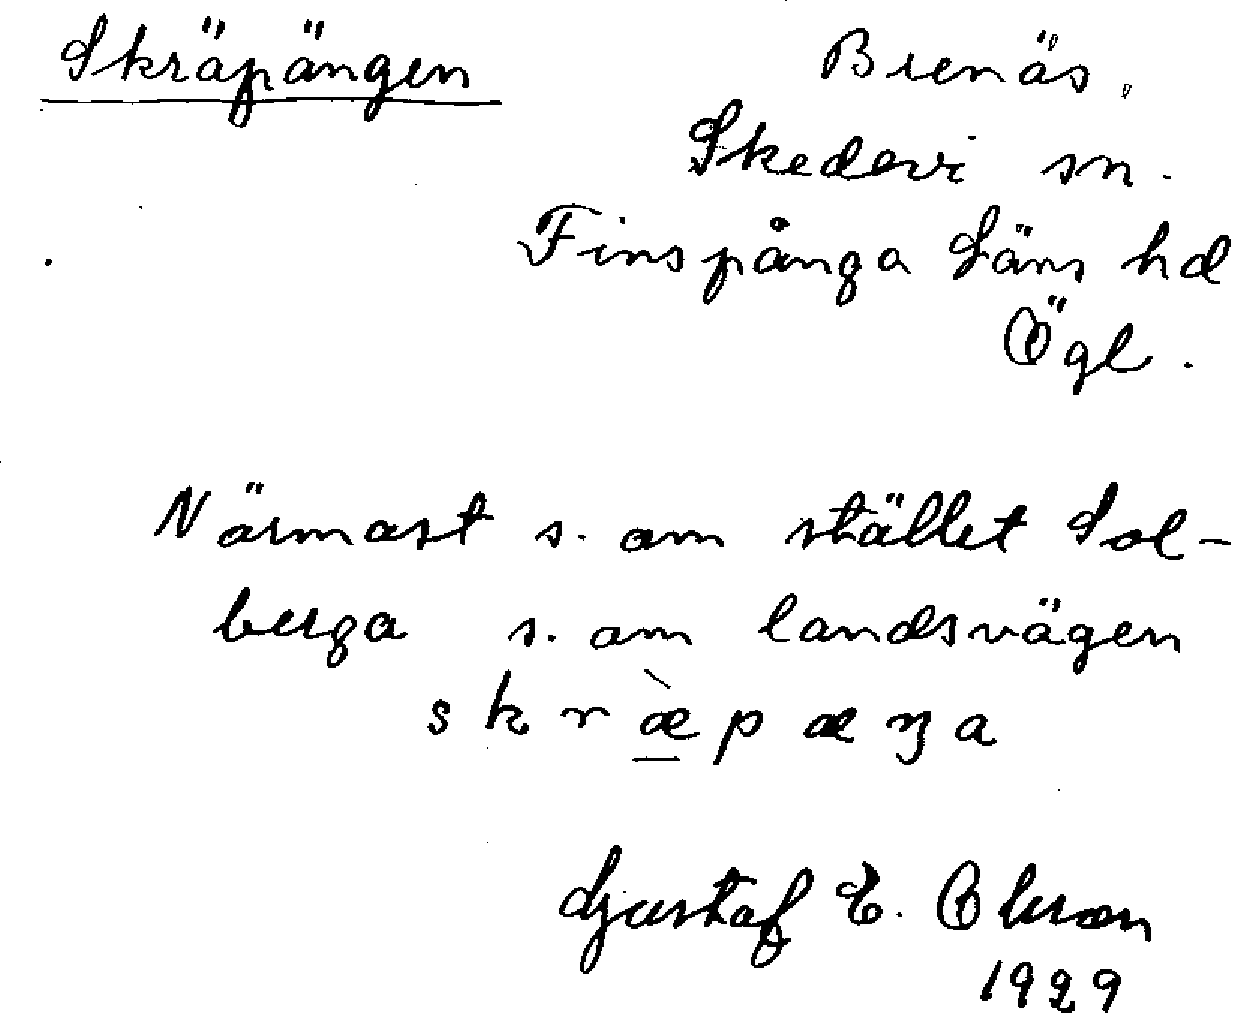 Skräpängen
Brenäs,
Skedevi sn.
Finspånga Läns hd
Ögl.
Närmast s. om stället Sol-
berga s. om landsvägen
skræ̀pæŋa
Gustaf E. Olsson
1929